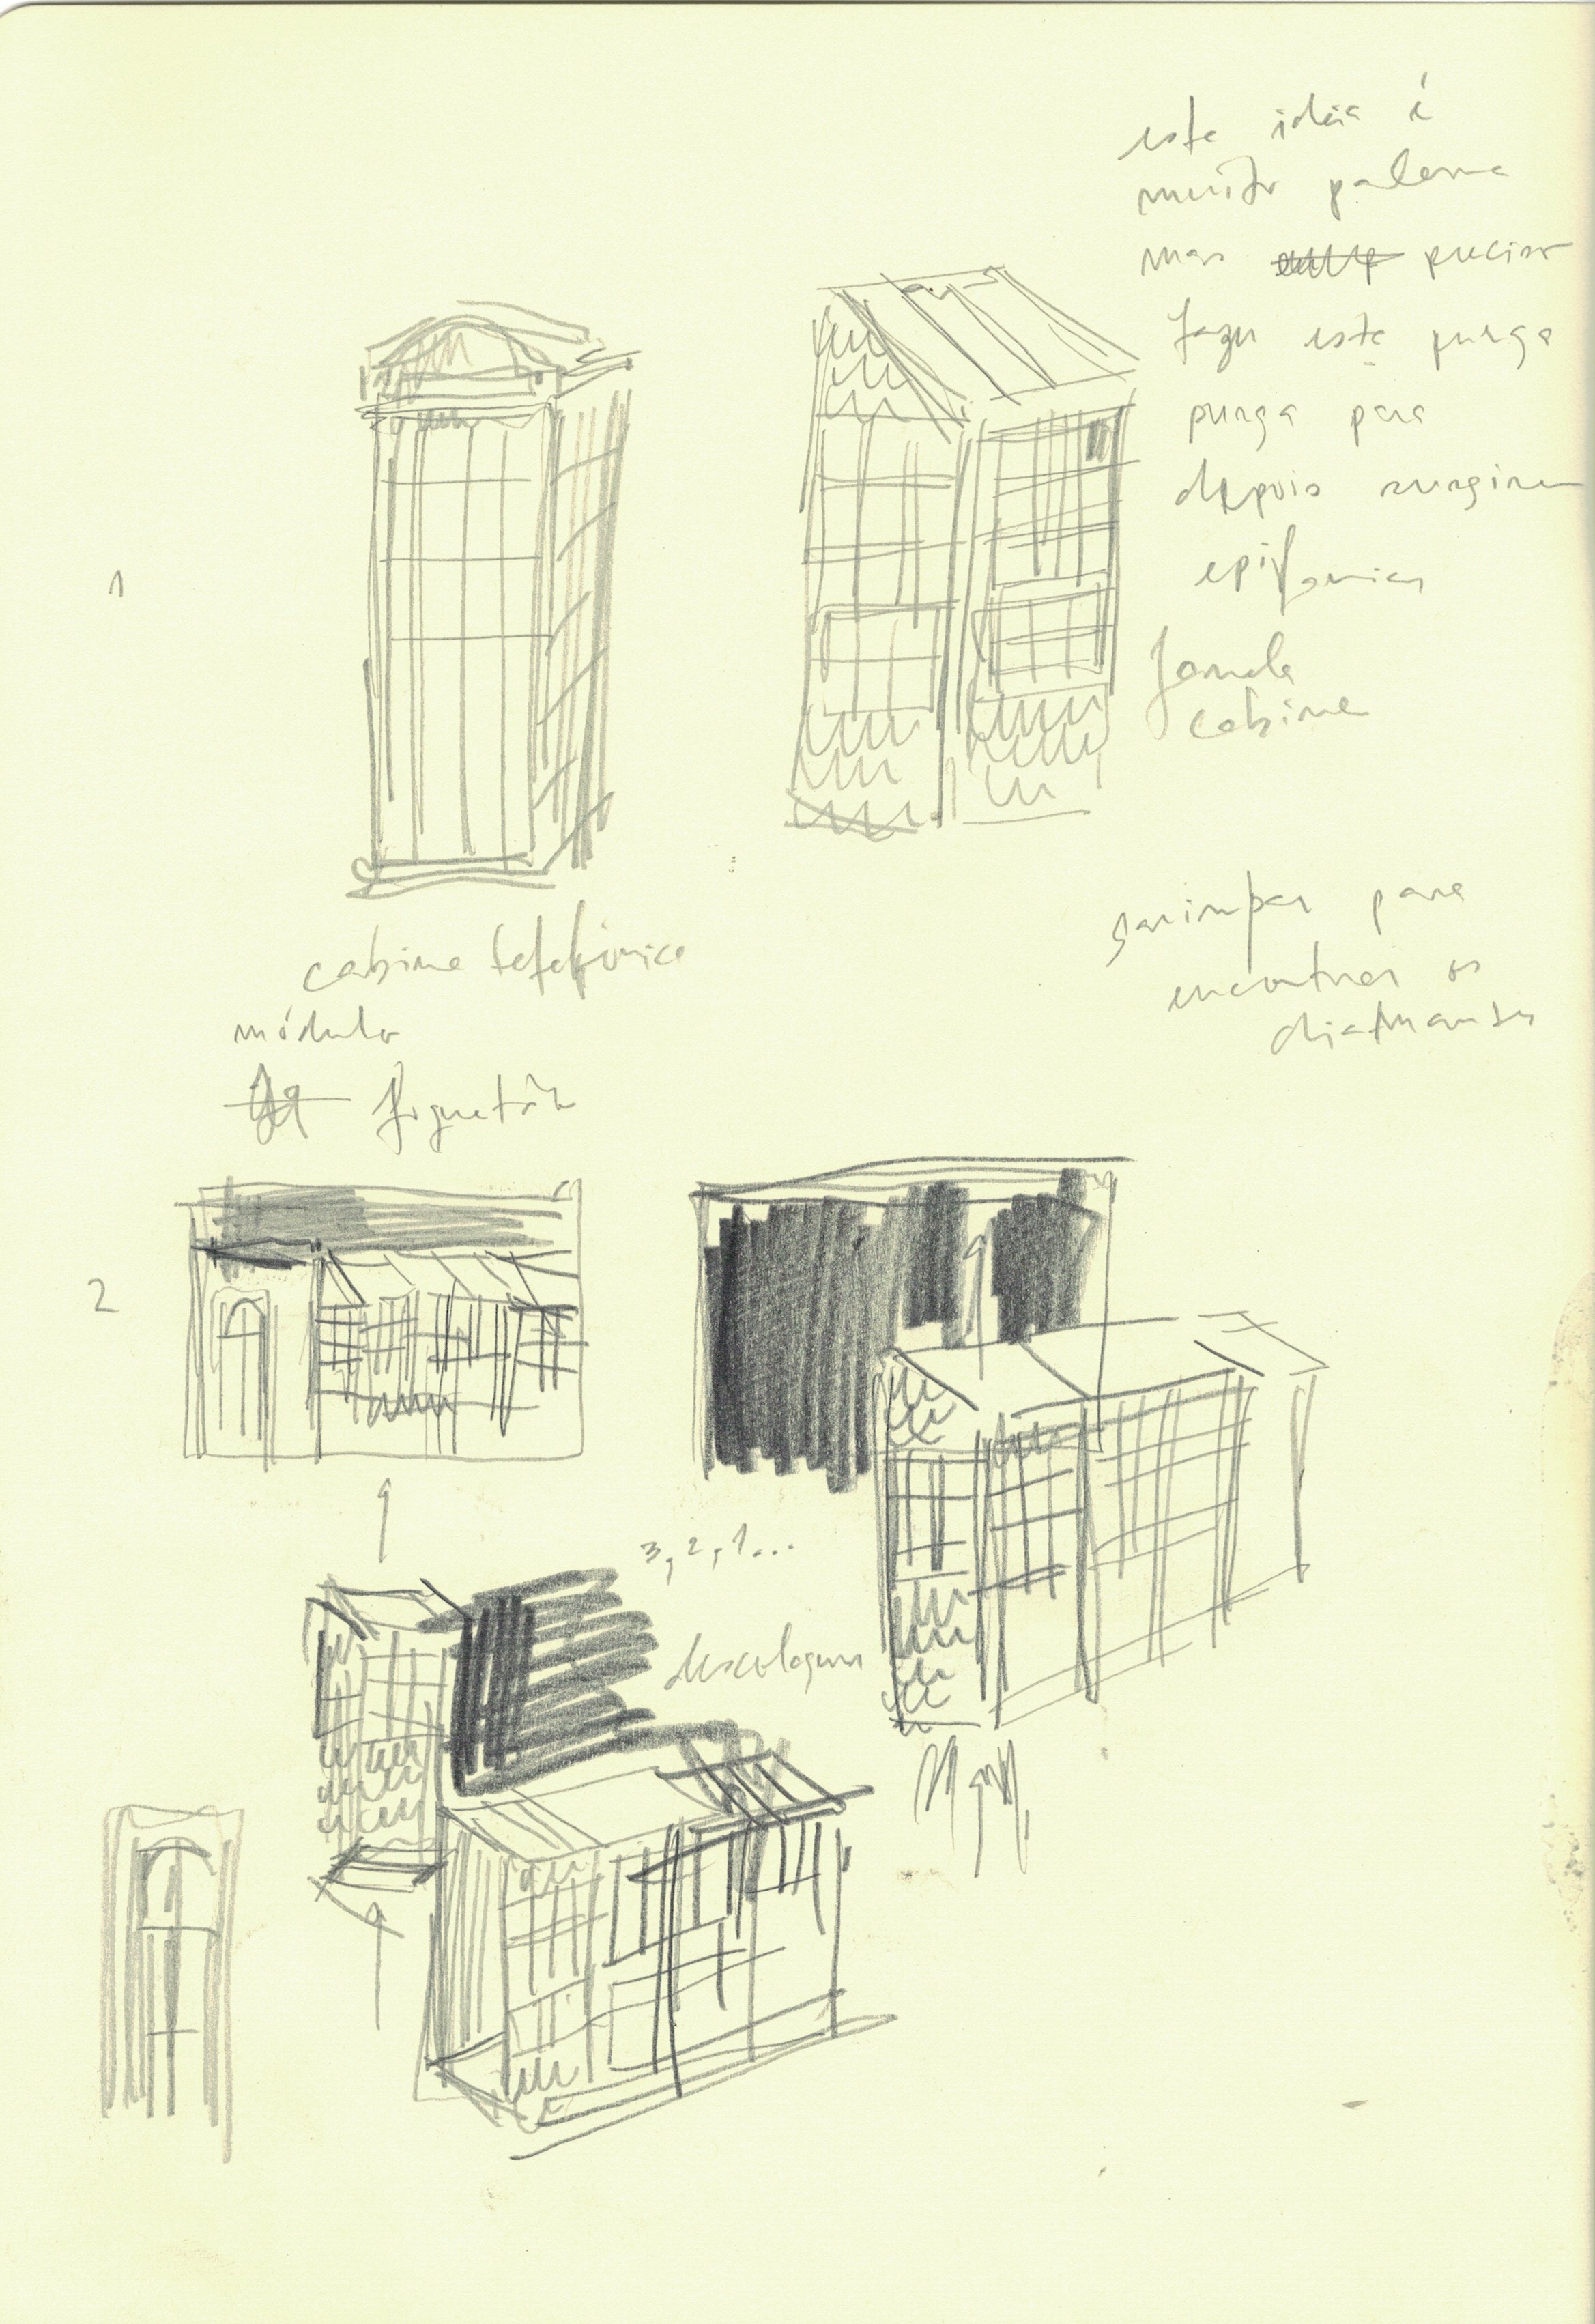 esta idéia é
muito palerma
mas preciso
fazer esta purga
purga para
depois surgirem
epifanias
janela
cabine
1
cabine telefónica
módulo
foguetão
garimpar para
encontrar os
diamantes
2
3, 2, 1...
descolagem